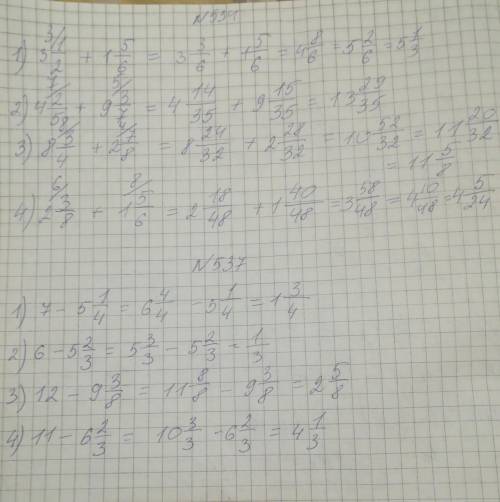 1) 3 1/2 + 1 5/6 = 3 3/6 + 1 5/6 = 4 8/6 = 5 2/6 = 5 1/3
= 4 14/35 + 9 15/35 = 13 29/35
3) 8 3/4 + 2 7/8 = 8 24/32 + 2 28/32 = 10 52/32 = 11 20/32
= 11 5/8
4) 2 3/8 + 1 5/6 = 2 18/48 + 1 40/48 = 3 58/48 = 4 10/48 = 4 5/24
N537
1) 7 - 5 1/4 = 6 4/4 - 5 1/4 = 1 3/4
2) 6 - 5 2/3 = 5 3/3 - 5 2/3 = 1/3
3) 12 - 9 3/8 = 11 8/8 - 9 3/8 = 2 5/8
4) 11 - 6 2/3 = 10 3/3 - 6 2/3 = 4 1/3